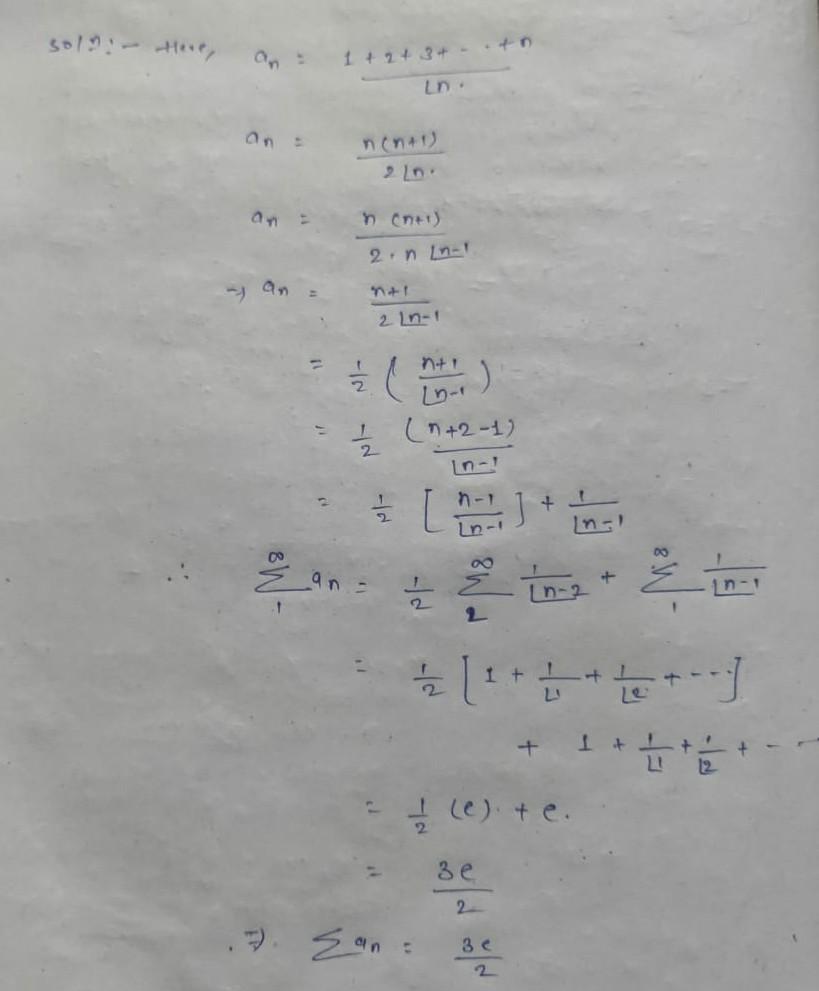 Solⁿ:- Here, aₙ = (1 + 2 + 3 + - - . + n) / ⌊n.
aₙ = n(n+1) / 2⌊n.
aₙ = n (n+1) / 2.n ⌊n-1
→ aₙ = n+1 / 2⌊n-1
= 1/2 ( n+1 / ⌊n-1 )
= 1/2 (n+2-1) / ⌊n-1
= 1/2 [ n-1 / ⌊n-1 ] + 1 / ⌊n-1
∴ ∞Σ1 aₙ = 1/2 ∞Σ2 1 / ⌊n-2 + ∞Σ1 1 / ⌊n-1
= 1/2 [ 1 + 1/⌊1 + 1/⌊2 + - - - ]
+ 1 + 1/⌊1 + 1/⌊2 + - - -
= 1/2 (e) . + e.
= 3e / 2
. ⇒. Σ aₙ = 3e / 2